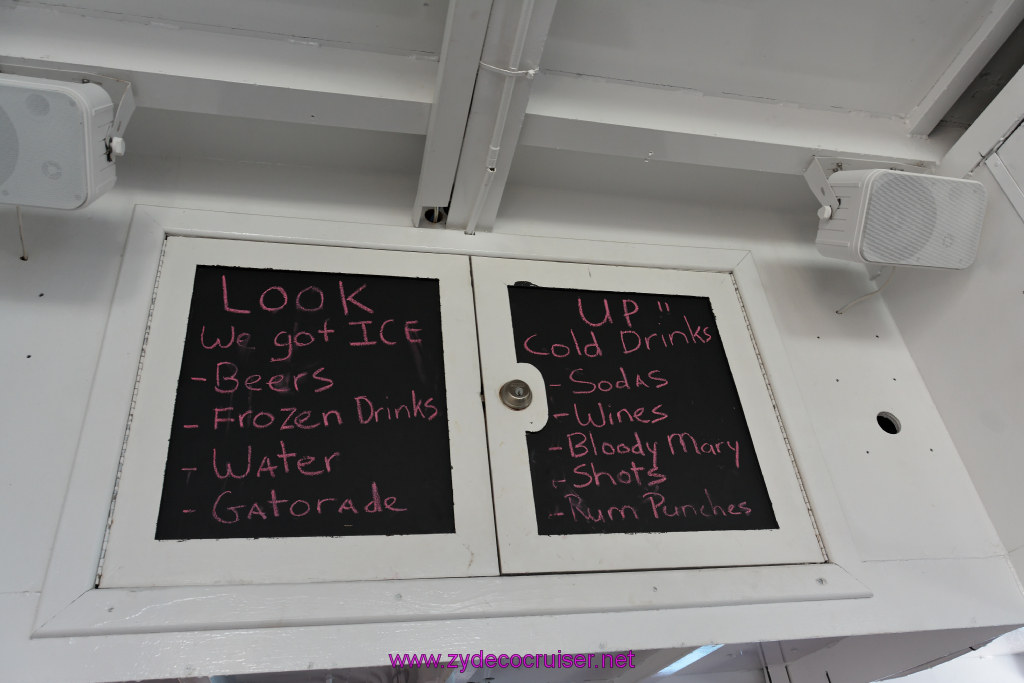 LOOK
We got ICE
- Beers
- Frozen Drinks
- WAter
- GAtorade
UP !!
Cold Drinks
- SodAS
- Wines
- Bloody Mary
- Shots
- Rum Punches
www.zydecocruiser.net